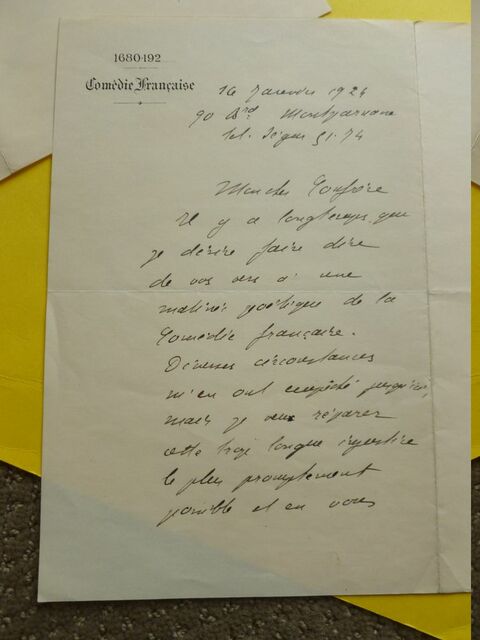 1680-192
Comédie Française
16 Janvier 1924
90 Brd Montparnasse
tel. Ségur 51-74
Mon cher Confrère
Il y a longtemps que
je désire faire dire
de vos vers à une
matinée poétique de la
Comédie française.
Diverses circonstances
m'en ont empêché jusqu'ici,
mais je veux réparer
cette trop longue injustice
le plus promptement
possible et en vous